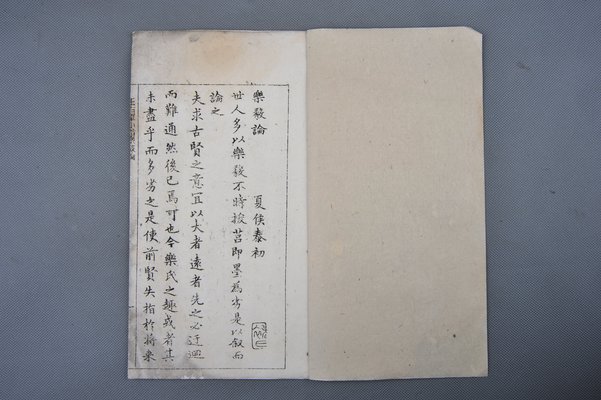 樂毅論　夏侯泰初
世人多以樂毅不時拔莒即墨為劣是以叙而
論之
夫求古賢之意宜以大者遠者先之必迂迴
而難通然後已焉可也今樂氏之趣或者其
未盡乎而多劣之是使前賢失指於將來